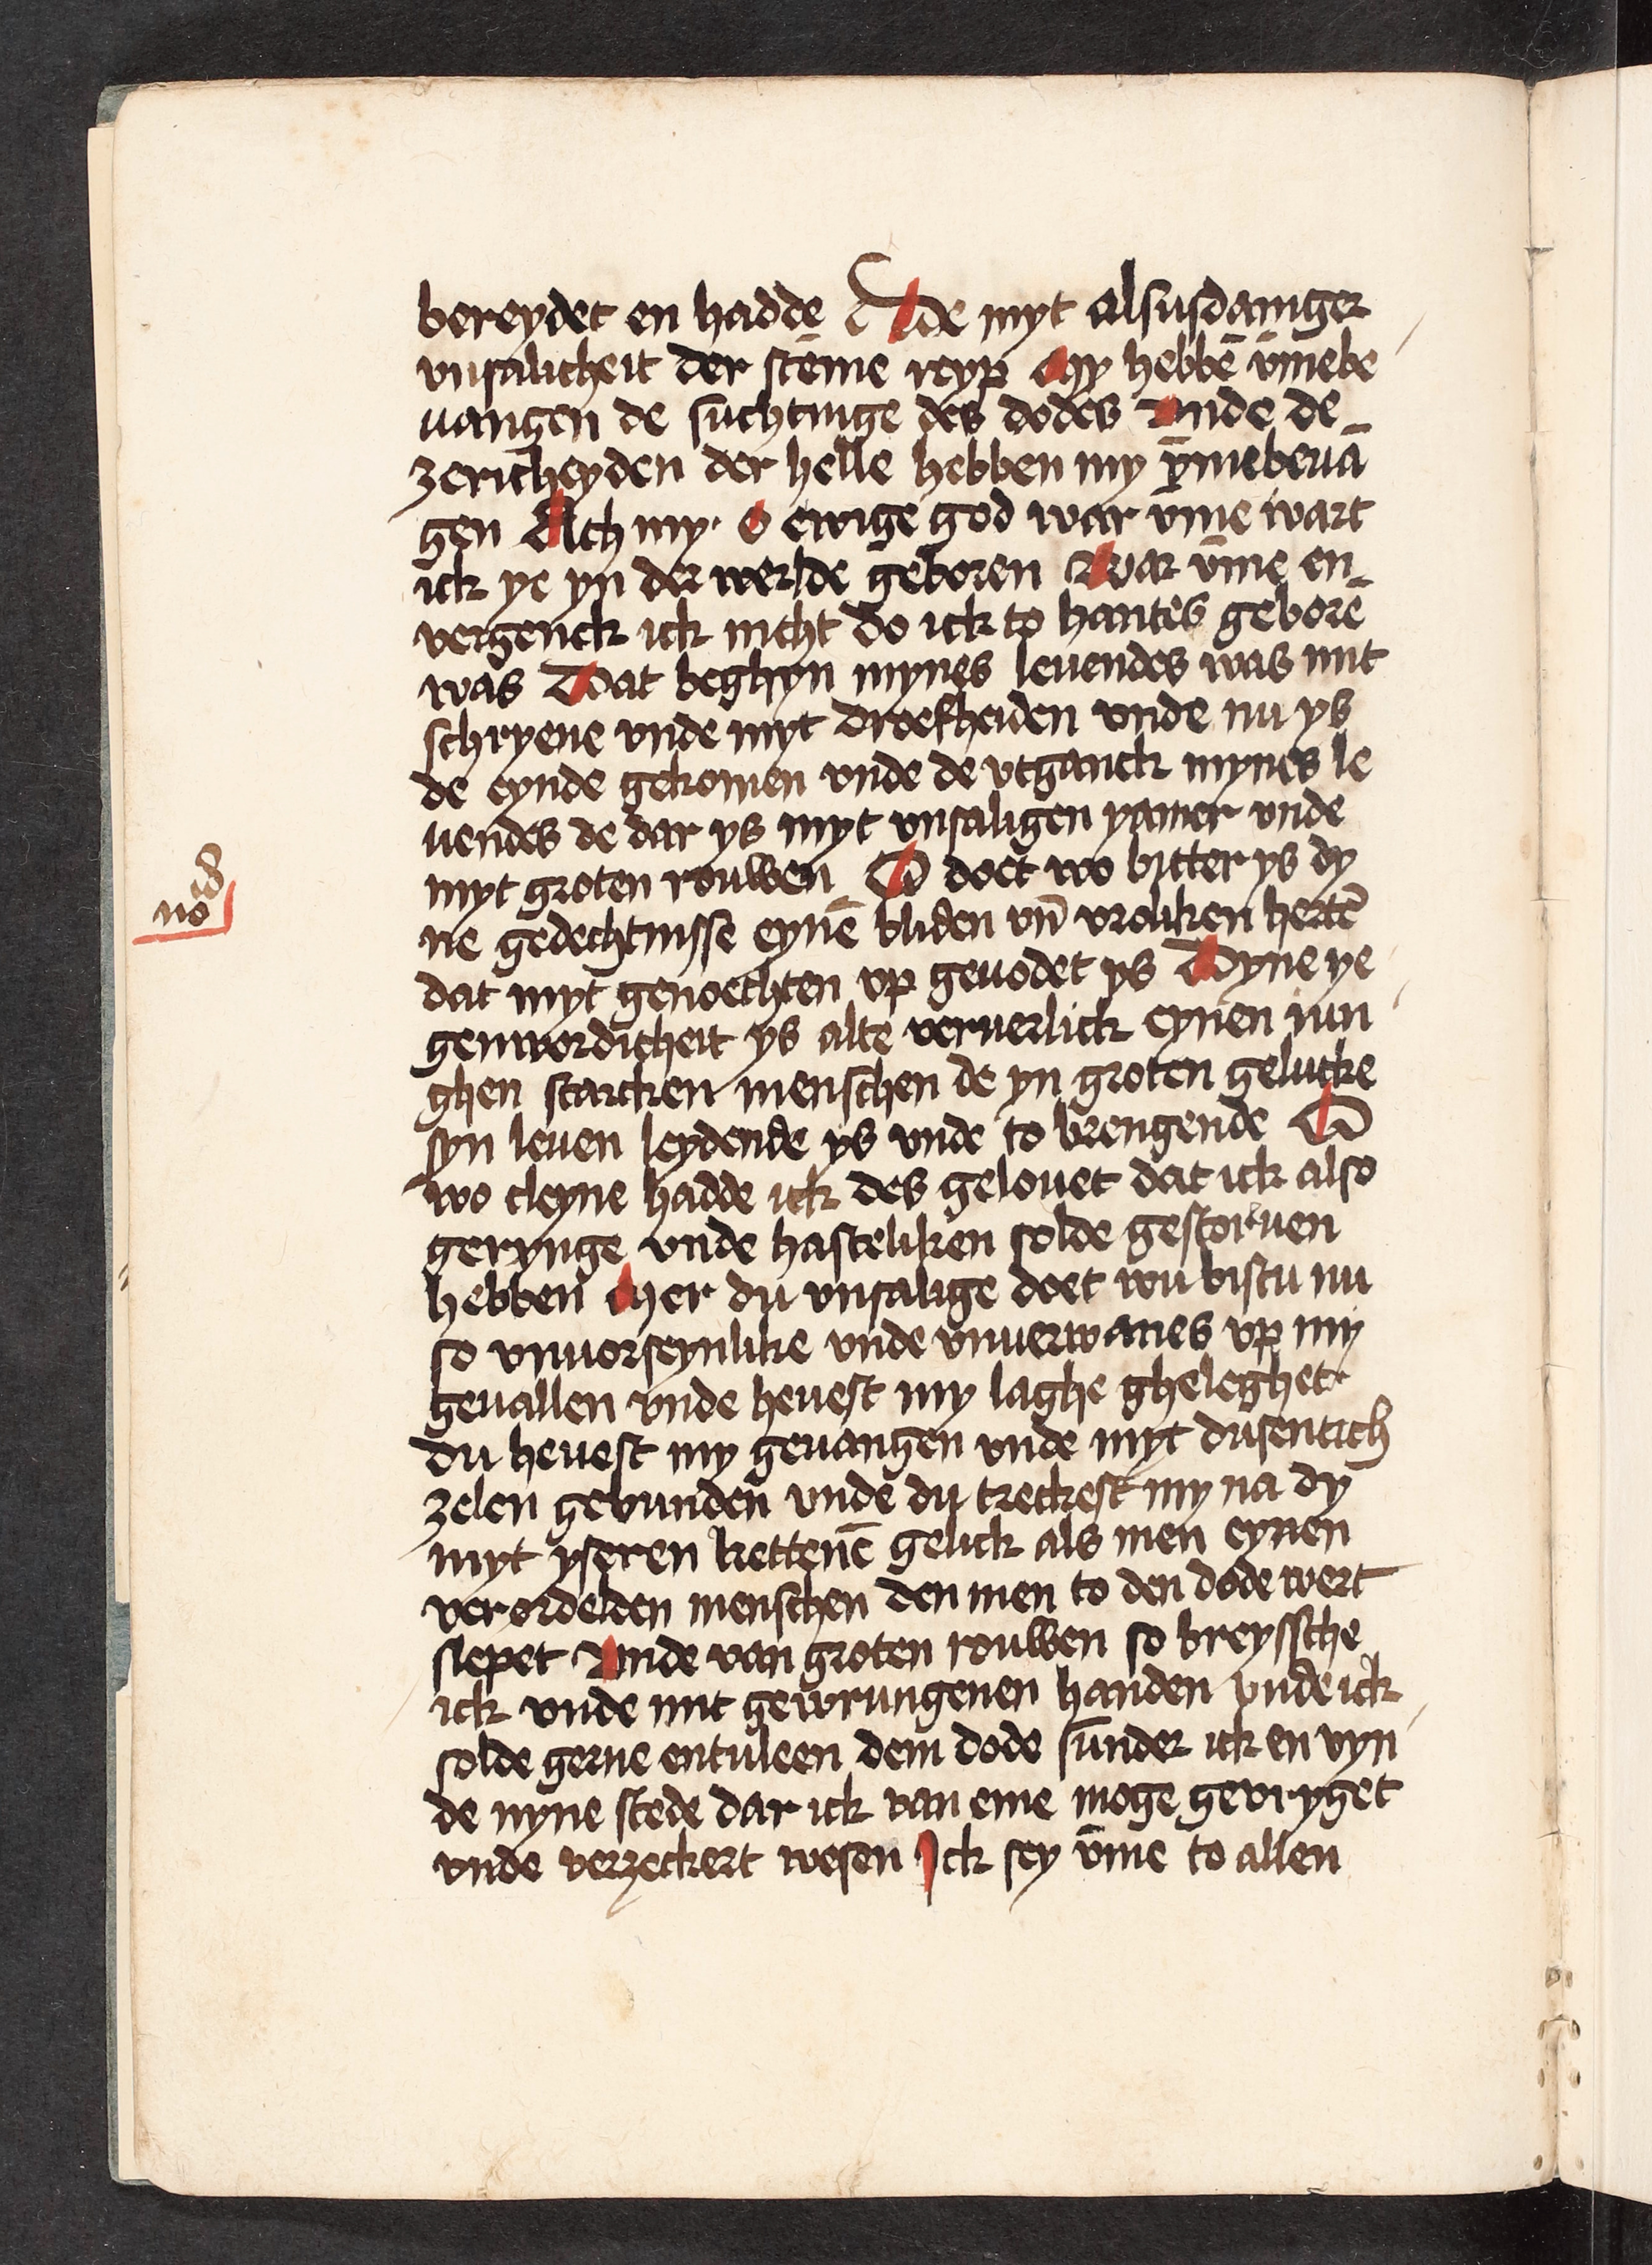 bereydet en hadde Vnde myt alsusdaniger
vnsalicheit der stēme reyp My hebbē v̄mebe
uangen de suchtinge des dodes Vnde de
zericheyden der helle hebben my v̄mebeuā
gen Ach my. O ewige god war v̄me wart
ick ye yn der werlde geboren War v̄me en
vergenck ick nicht do ick to hantes geborē
was Dat beghyn mynes leuendes was mit
schryene vnde myt droefheiden vnde nu ys
de eynde gekomen vnde de vtganck mynes le
uendes de dar ys myt vnsaligen yamer vnde
myt groten rouwen O doet wo bitter ys dy
ne gedechtnisse eynē bliden vn̄ vroliken hertē
dat myt genoechten vp geuodet ys Dyne ye
genwordicheit ys alte veruerlick eynen iun
ghen starcken menschen de yn groten gelucke
syn leuen leydende ys vnde to brengende O
wo cleyne hadde ick des gelouet dat ick also
gerynge vnde hasteliken solde gestoruen
hebben Mer du vnsalige doet wu bistu nu
so vnuorseynlike vnde vnuerwanes vp my
geuallen vnde heuest my laghe gheleghet
du heuest my geuangen vnde myt dusentich
zelen gebunden vnde du treckest my na dy
myt yseren kettenē gelick als men eynen
verordelden menschen den men to den dode wert
slepet Vnde van groten rouwen so breyssche
ick vnde mit gewrungenen handen vnde ick
solde gerne entuleen dem dode sunder ick en vyn
de nyne stede dar ick van eme moge gevryget
vnde verzeckert wesen Ick sey v̄me to allen